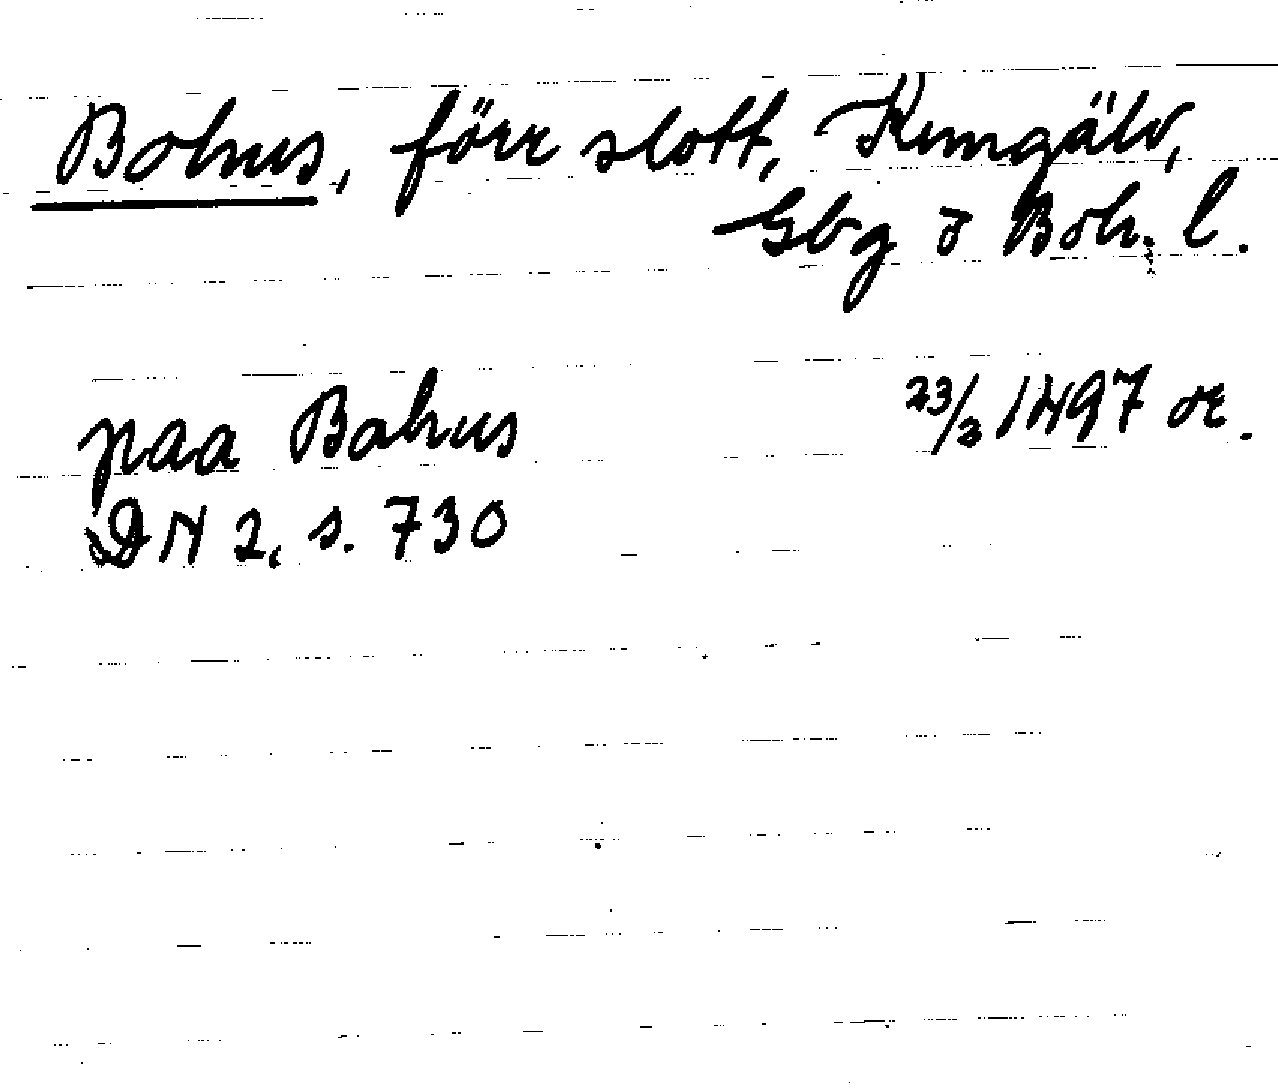 Bohus, förr slott, Kungälv,
Gbg o Boh. l.
paa Bahus 23/3 1497 or.
DN 2, s. 730